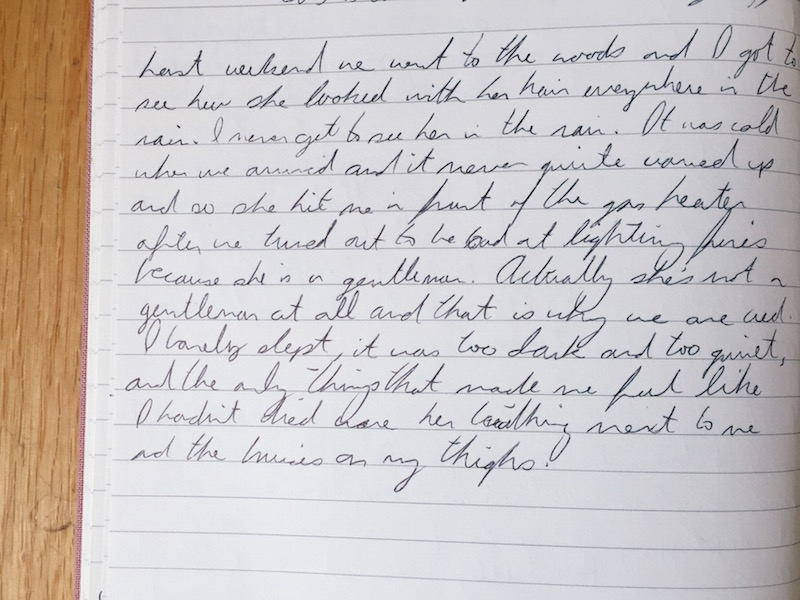 Last weekend we went to the woods and I got to
see how she looked with her hair everywhere in the
rain. I never get to see her in the rain. It was cold
when we arrived and it never quite warmed up
and so she hit me in front of the gas heater
after we turned out to be bad at lighting fires
because she is a gentleman. Actually she's not a
gentleman at all and that is why we are wed.
I barely slept, it was too dark and too quiet,
and the only things that made me feel like
I hadn't died were her breathing next to me
and the bruises on my thighs.